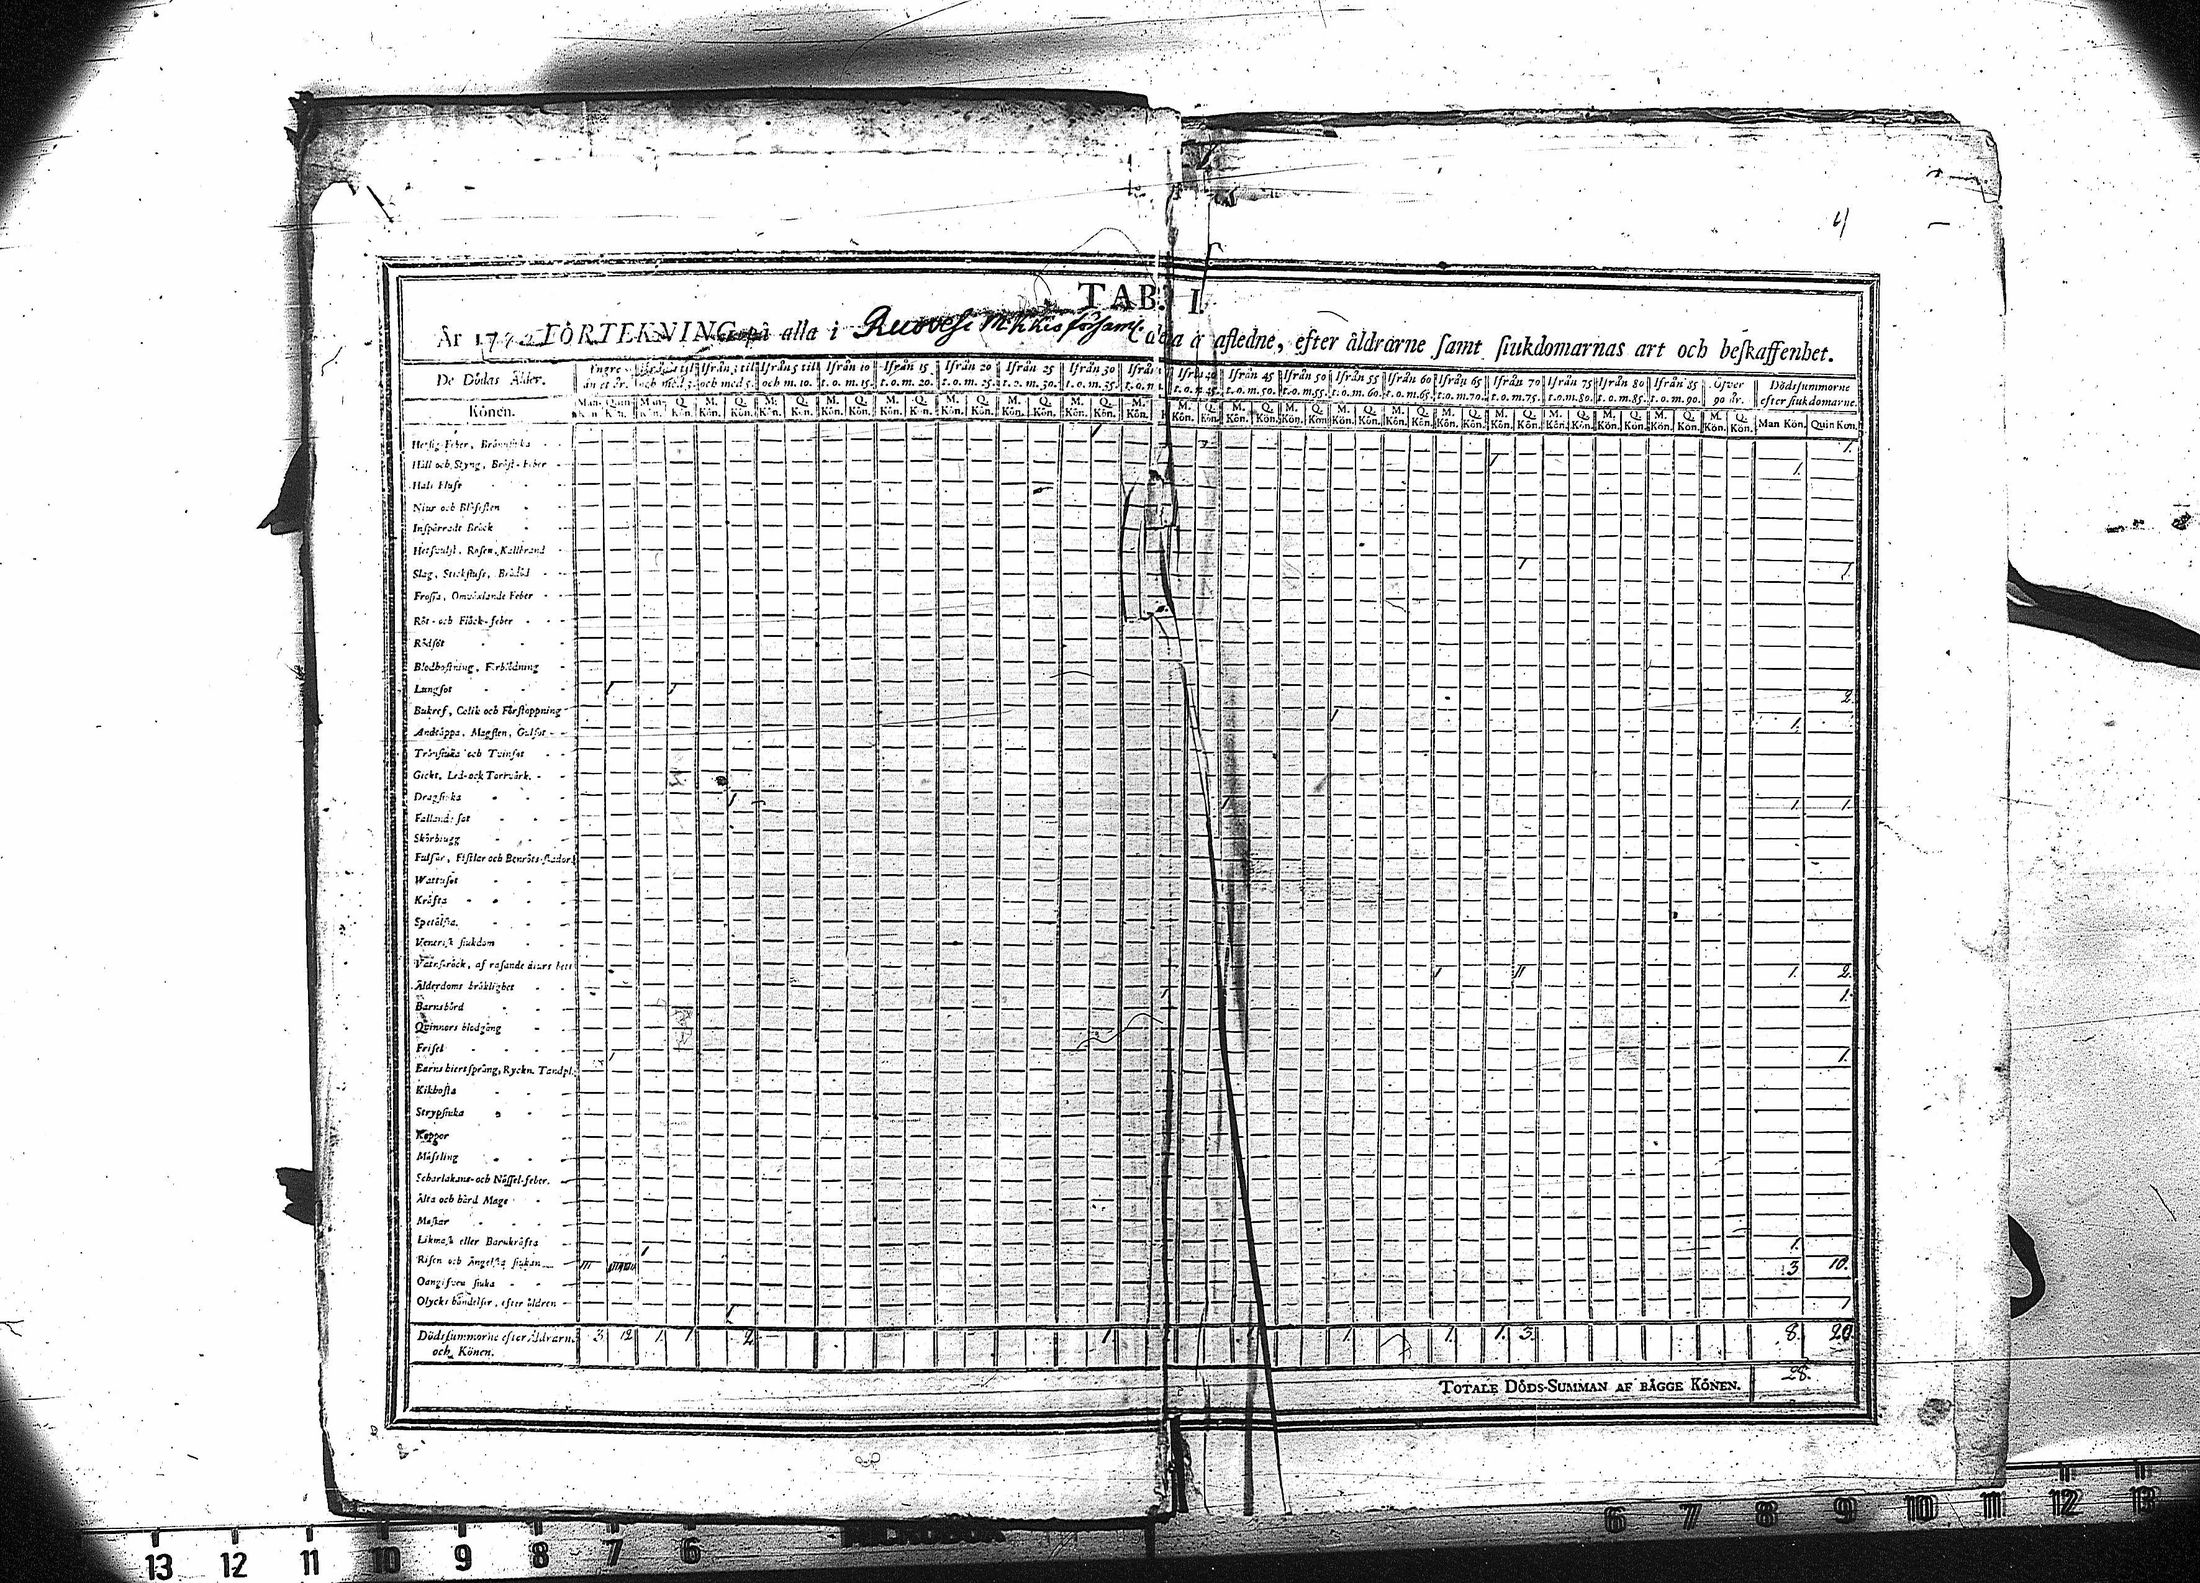 TAB. I.
År 1772 FÖRTEKNING på alla i Ruovesi afledne, efter åldrarne samt siukdomarnas art och beskaffenhet.
De Dödas Ålder. Yngre än et år. Ifrån 3 til och med 5. Ifrån 5 till och m. 10. Ifrån 10 t. o. m. 15. Ifrån 15 t. o. m. 20. Ifrån 20 t. o. m. 25. Ifrån 25 t. o. m. 30. Ifrån 30 t. o. m. 35. Ifrån 45 t. o. m. 50. Ifrån 50 t. o. m. 55. Ifrån 55 t. o. m. 60. Ifrån 60 t. o. m. 65. Ifrån 65 t. o. m. 70. Ifrån 70 t. o. m. 75. Ifrån 75 t. o. m. 80. Ifrån 80 t. o. m. 85. Ifrån 85 t. o. m. 90. Öfver 90 år. Dödssummorne efter siukdomarne.
Könen. M. Kön. Q. Kön. Man Kön. Quin Kön.
Hetsig Feber, Brännsiuka 1 1.
Håll och Styng, Bröst-Feber 1 1.
Hals Flufs
Niur och Blåsesten
Inspärrade Bråck
Hetsvulst, Rosen, Kallbrand
Slag, Stickflufs, Brådöd 1 1.
Frossa, Omväxlande Feber
Röt- och Fläck-feber
Rödsot
Blodhostning, Förblödning
Lungsot 1 1 2
Bukref, Colik och Förstoppning
Andtäppa, Magsten, Gulsot 1 1.
Tränsiuka och Tvinsot
Gickt, Led- och Torrvärk.
Dragsiuka 1 1 1. 1.
Fallande sot
Skörbiugg
Fulsår, Fistlar och Benröts-skador
Wattusot
Kräfta
Spetälska.
Venerisk siukdom
Vatnskräck, af rasande diurs bett
Ålderdoms bräklighet 1 11 1. 2.
Barnsbörd 1 1.
Quinnors blodgång
Frisel
Barns hiertsprång, Ryckn. Tandpl. 1 1.
Kikhosta
Strypsiuka
Koppor
Mässling
Scharlakans- och Nässel-feber.
Älta och hård Mage
Maskar
Likmask eller Barnkräfta 1 1.
Risen och Ängelska siukan 3 10.
Oangifven siuka
Olycks händelser, efter åldren 1 1
Dödssummorne efter Åldrarne och Könen. 3 12 1. 1 2 1. 1. 1. 1. 3. 8. 20.
TOTALE DÖDS-SUMMAN AF BÄGGE KÖNEN. 28.
13 12 11 10 9 8 7 6 6 7 8 9 10 11 12 13